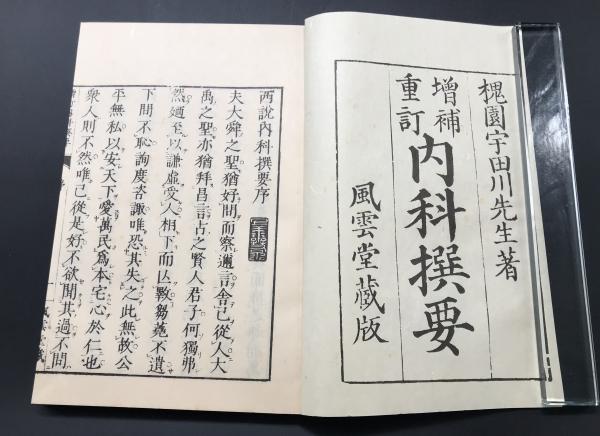 槐園宇田川先生著
增補
重訂
内科撰要
風雲堂藏版
西說内科撰要序
夫大舜之聖猶好問而察邇言舍己從人大
禹之聖亦猶拜昌言古之賢人君子何獨弗
然廼至以謙虛受人相下而芻蕘不遺
下問不恥詢度咨諏唯恐其失之此無故公
平無私以安天下愛萬民爲本宅心於仁也
衆人則不然唯己從是好不欲聞其過不問